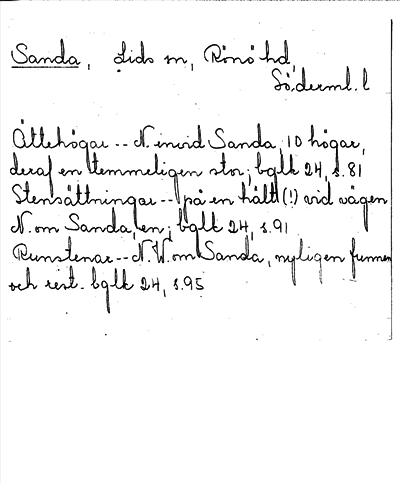 Sanda, Lids sn, Rönö hd,
Söderml. l
Ättehögar -- N. invid Sanda, 10 högar,
deraf en temmeligen stor; bglk 24, s. 81
Stensättningar -- på en hält (!) vid vägen
N. om Sanda, en; bglk 24, s. 91
Runstenar -- N.V. om Sanda, nyligen funnen
och rest. bglk 24, s. 95